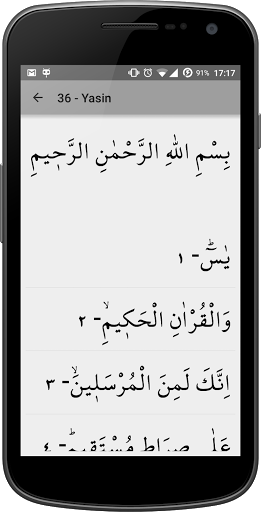 91% 17:17
36 - Yasin
بِسْمِ اللهِ الرَّحْمٰنِ الرَّحٖيمِ
يٰسٓۜ - ١
وَالْقُرْاٰنِ الْحَكٖيمِۙ - ٢
اِنَّكَ لَمِنَ الْمُرْسَلٖينَۙ - ٣
عَلٰى صِرَاطٍ مُسْتَقٖيمٍۜ - ٤